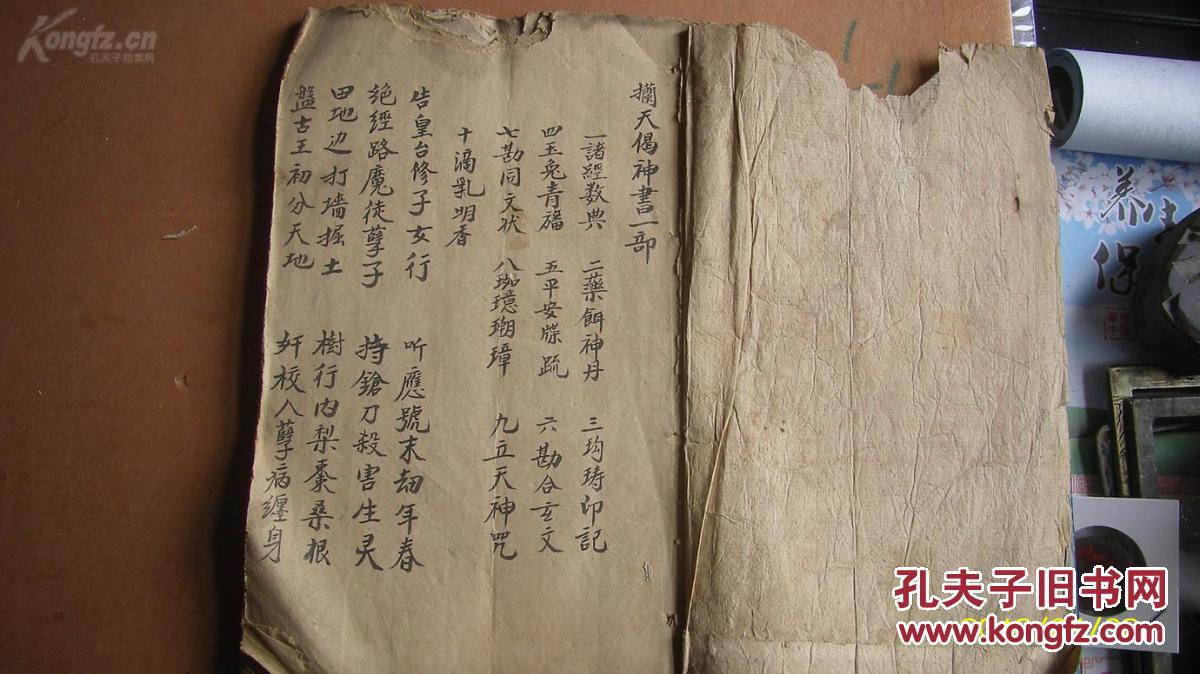 攔天偈神書一部
一諸經数典 二藥餌神丹 三玽琦印記
四玉兔青旛 五平安牒疏 六勘合玄文
七勘同文状 八 九立天神咒
十滴乳明香
告皇台修子女行 听應號末劫年春
绝經路魔徒孽子 持鎗刀殺害生灵
田地边打墙掘土 樹行内梨棗桑根
盤古王初分天地 奸校人孽病纏身
养生
保
Kongfz.cn
孔夫子拍卖网
孔夫子旧书网
www.kongfz.com